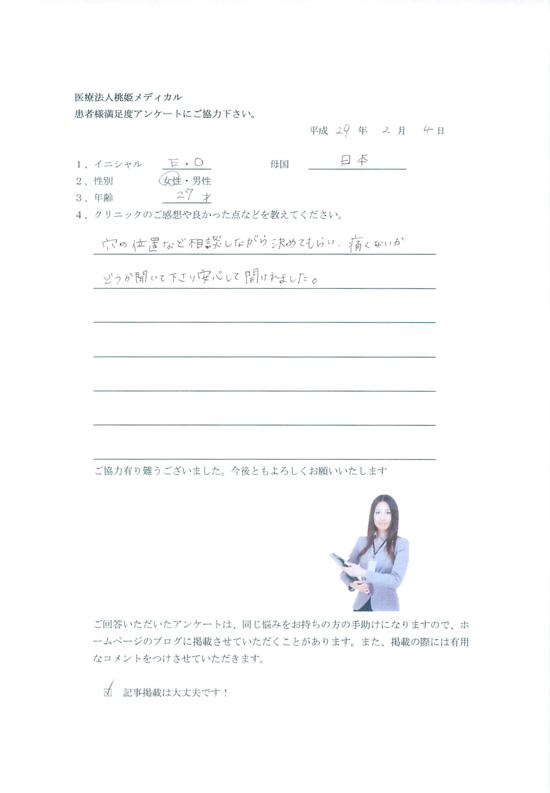 医療法人桃姫メディカル
患者様満足度アンケートにご協力下さい。
平成 29 年 2 月 4 日
1、イニシャル E・O 母国 日本
2、性別 女性・男性
3、年齢 27 才
4、クリニックのご感想や良かった点などを教えてください。
穴の位置など相談しながら決めてもらい、痛くないか
どうか聞いて下さり安心して開けれました。
ご協力有り難うございました。今後ともよろしくお願いいたします
ご回答いただいたアンケートは、同じ悩みをお持ちの方の手助けになりますので、ホ
ームページのブログに掲載させていただくことがあります。また、掲載の際には有用
なコメントをつけさせていただきます。
☑ 記事掲載は大丈夫です！